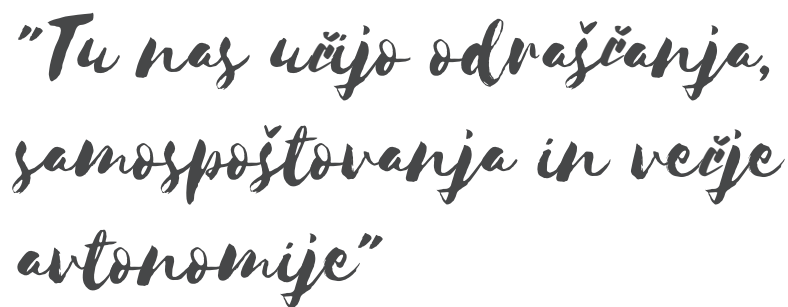 "Tu nas učijo odraščanja,
samospoštovanja in večje
avtonomije"